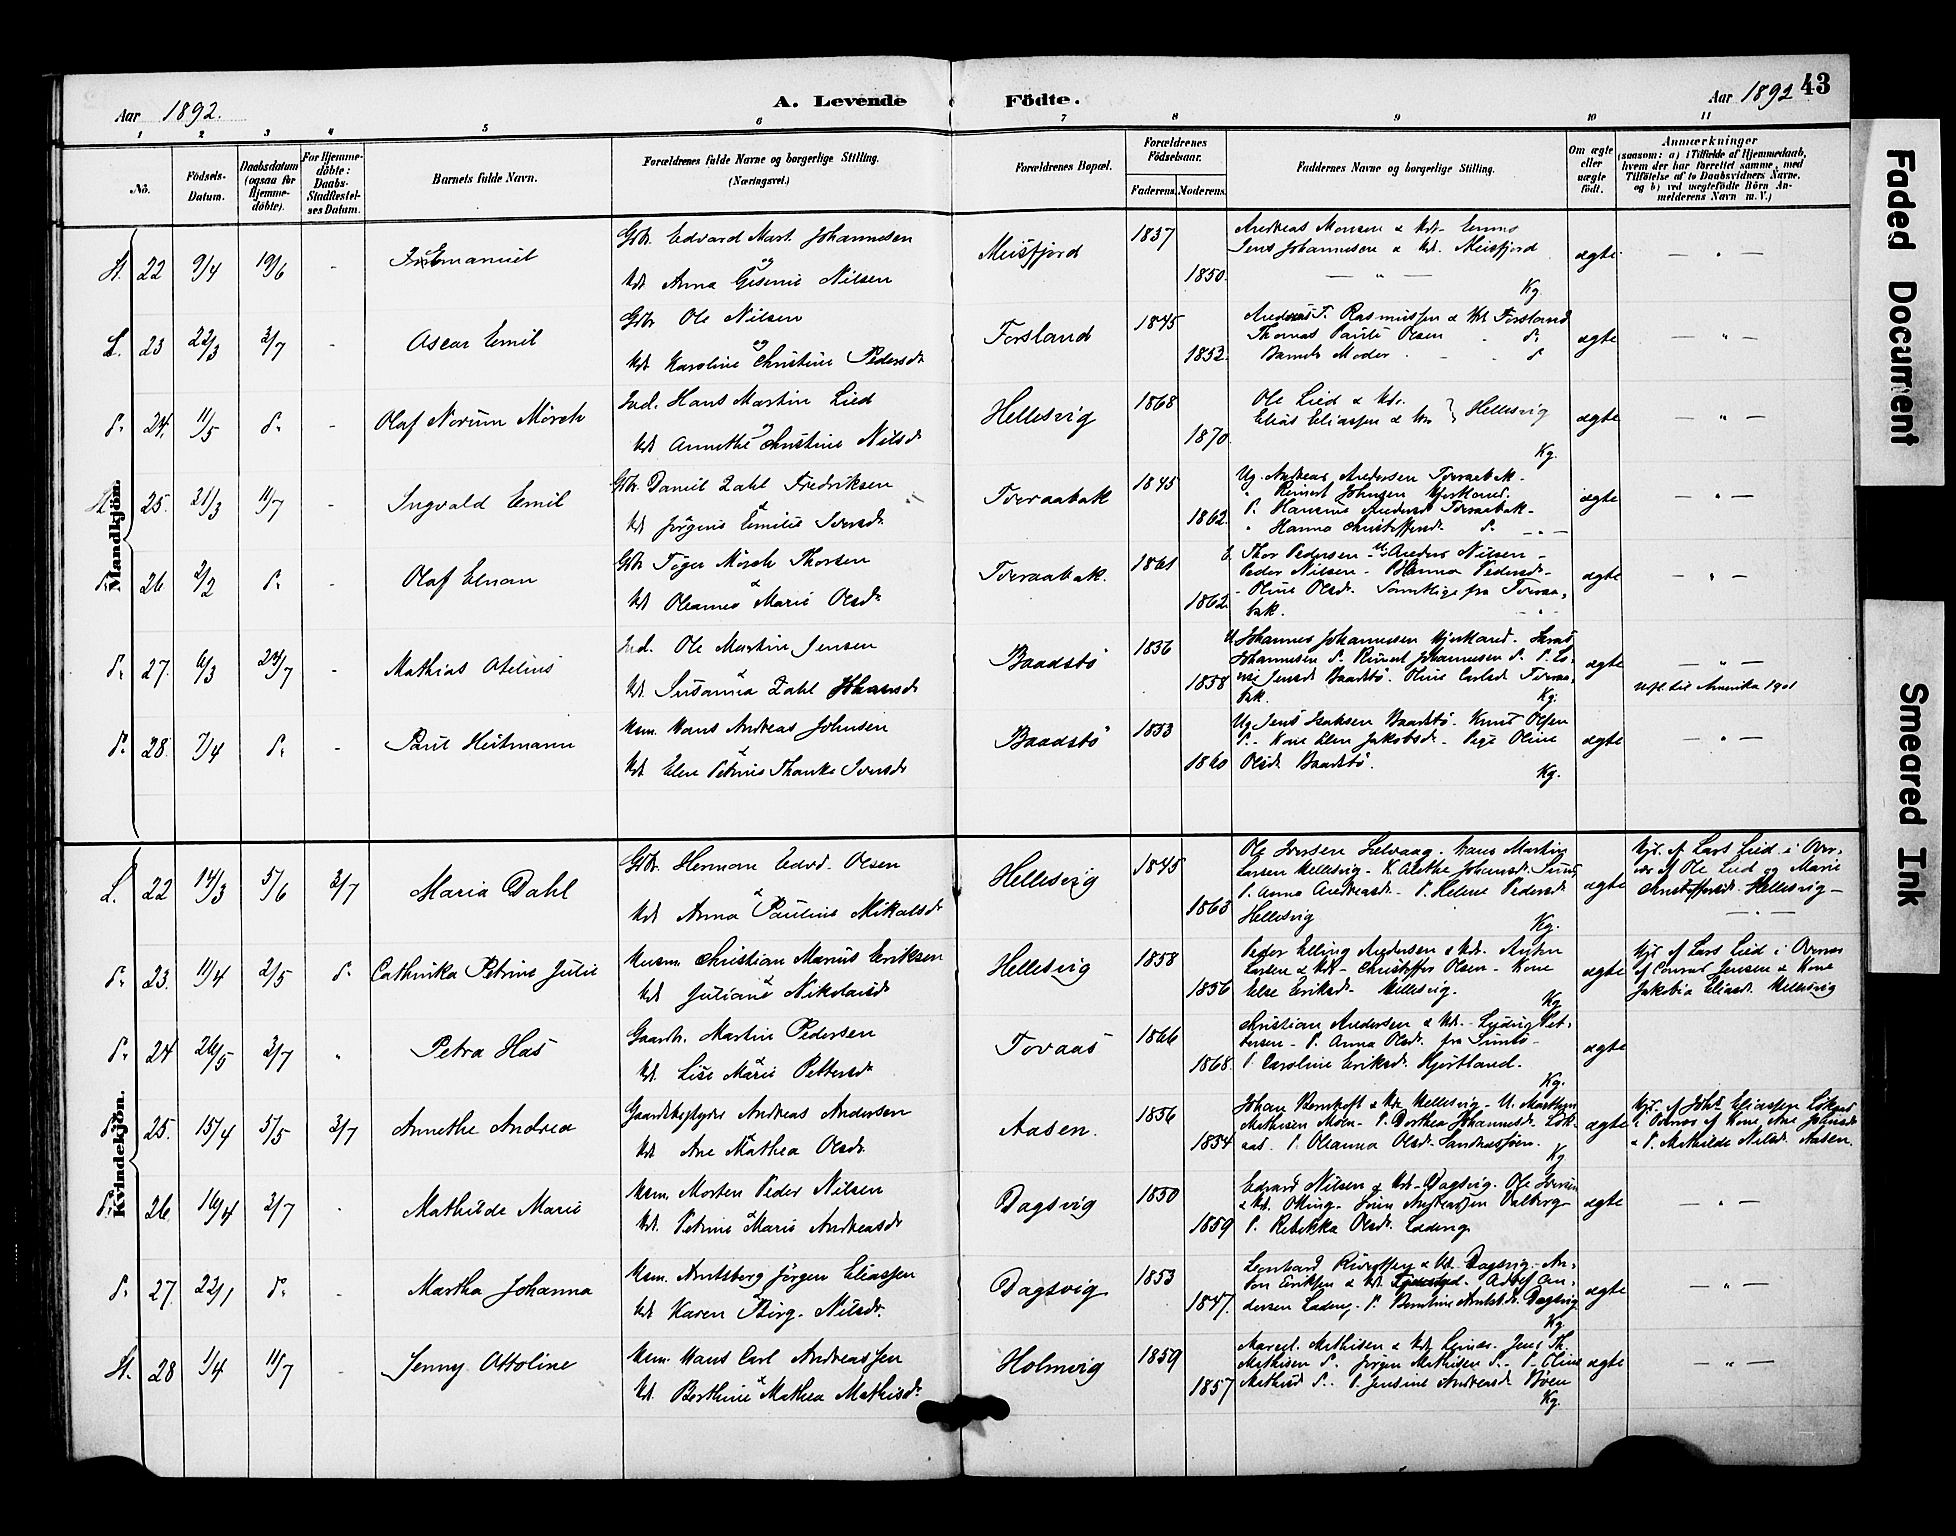 Aar 1892.
A. Levende Födte.
Aar 1892
43
1 2 3 4 5 6 7 8 9 10 11
No.
Födsels-Datum.
Daabsdatum (ogsaa for Hjemmedöbte).
For Hjemmedöbte: Daabs-Stadfestelses Datum.
Barnets fulde Navn.
Forældrenes fulde Navne og borgerlige Stilling. (Næringsvei.)
Forældrenes Bopæl.
Forældrenes Födselsaar.
Faderens. Moderens.
Faddernes Navne og borgerlig Stilling.
Om ægte eller uægte födt.
Anmærkninger
(saasom: a) i Tilfælde af Hjemmedaab, hvem der har forrettet samme, med Tilföielse af to Daabsvidners Navne, og b) ved uægtefödte Börn Anmelderens Navn m. V.)
Mandkjön.
22 9/4 19/6 - Emanuel
Gbr. Edvard Mart. Johannesen
og
Kst Anna Gesenie Nilsen
Meisfjord 1837 1850.
Andreas Monsen & Kst.
Jens Johannesen & Kst. Meisfjord
Kg.
ægte
L. 23 22/3 3/7 - Oscar Emil
Gbr Ole Nilsen
og
Kst Karoline Christine Pedersdr
Forsland 1845 1852.
Rasmussen & Kst Forsland
Thomas Pault Olsen
Barnets Moder
ægte
24. 11/5 - Olaf Norum Mörch
Ind. Hans Martin Lied
og
Kst Annethe Christine Nilsdr
Hellesvig 1868 1870.
Ole Lied & Kst.
Elias Eliassen & Kst } Hellesvig
Kg.
ægte
25. 31/3 11/7 - Ingvald Emil
Gbr. Daniel Zahl Fredriksen
&
Kst Jörgine Emilie Iversdr
Tveraabak 1845 1862.
Ug. Andreas Andersen Tveraabak.
Reinert Johnsen
P. Hansine Andersdr Tveraabak
Hanna Christoffersdr
ægte
26. 2/2 - Olaf Elnan
Gbr Töger Mörch Thorsen
&
Kst Oleanna Marie Olsdr
Tveraabak. 1861 1862.
Thor Pedersen - Anders Nilsen -
Peder Nilsen - Hanna Pedersdr -
Oline Olsdr. Samtlige fra Tveraa-
bak.
ægte
27. 6/3 24/7 - Mathias Atelius
Ind. Ole Martin Jensen
&
Kst Susanna Zahl Johansdr
Baadstö 1836 1858
Johannes Johannesen
Johannesen Reinert Johannesen
Jensdr Baadstö. Oline Tveraa-
bak. Kg.
ægte
Utfl. til Amerika 1901
28. 7/4 - Paul Heitmann
Husm. Hans Andreas Johnsen
&
Kst Elen Petrine Thanke Iversdr
Baadstö 1853 1860
Ug. Jens Isaksen Baadstö. Knut Olsen
Kone Elen Jakobsdr - Pige Oline
Olsdr Baadstö.
Kg.
ægte
Kvindekjön.
L. 22 14/3 5/6 3/7 Maria Dahl
Gbr. Herman Edvd. Olsen
&
Kst Anna Pauline Mikalsdr
Hellesvig 1845 1863
Ole Iversen Selvaag. Hans Martin
Larsen Hellesvig - K. Alethe Johansdr
P. Anna Andreasdr - P. Helene Pedersdr
Hellesvig Kg.
ægte
Hjd. af Lars Lied i Over-
vær af Ole Lied og Marie
Christoffersdr. Hellesvig -
23. 11/4 2/5 Cathinka Petrine Julie
Husm. Christian Marius Eriksen
&
Kst Juliane Nikolaisdr
Hellesvig 1858 1856
Peder Elling Andersen & Kst. Anton
Larsen & Kst - Christoffer Olsen - Kone
Else Eriksdr Hellesvig. Kg
ægte
Hjd. af Lars Lied i Overvær
af Conrad Jensen & Kone
Jakobia Eliasdr. Hellesvig
24 26/5 3/7 Petra Has
Gaardbr. Martin Pedersen
&
Kst. Lise Marie Pettersdr
Tovaas 1866 1868.
Christian Andersen & Kst. - Ludvig Pet-
tersen - P. Anna Olsdr. fra
P. Caroline Eriksdr. Hjörtland.
Kg.
ægte
25. 15/4 5/5 3/7 Annethe Andrea
Gaardbestyrer Andreas Andersen
&
Kst Ane Mathea Olsdr.
Aasen. 1856 1854
Johan Hellesvig - U.
Mathisen Moen - P. Dorthea Johannesdr.
P. Oleanna Olsdr. Sandnessjöen.
Kg
ægte
Hjd. af Eliassen
i Overvær af Kone Ane Johnsdr
& P. Mathilde Nilsdr. Aasen.
26. 16/4 3/7 - Mathilde Marie
Husm. Morten Peder Nilsen
&
Kst. Petrine Marie Andreasdr
Dagsvig 1850 1859
Edvard Nilsen & Kst. Dagsvig. Ole Iversen
& Kst. Andreassen Valberg -
P. Rebekka Olsdr. Lading.
ægte
27. 22/1 - Martha Johanna
Husm. Arntsberg Jörgen Eliassen
Kst Karen Birg. Nilsdr.
Dagsvig 1853 1847.
Leonhard & Kst. Dagsvig - An-
ton Eriksen & Kst. Adolf An-
dersen Lading. P. Berntine Arntsdr. Dagsvig
Kg
ægte
28 1/4 11/7 - Jenny Ottoline
Husm. Hans Carl Andreassen
&
Kst. Berthine Mathea Mathisdr
Holmvig 1859 1857
Marcel. Mathisen & Kst. Jens Th.
Mathisen Jörgen Mathisen - P. Oline
Mathisdr P. Jensine Andreasdr
Kg.
ægte
Faded Document
Smeared Ink